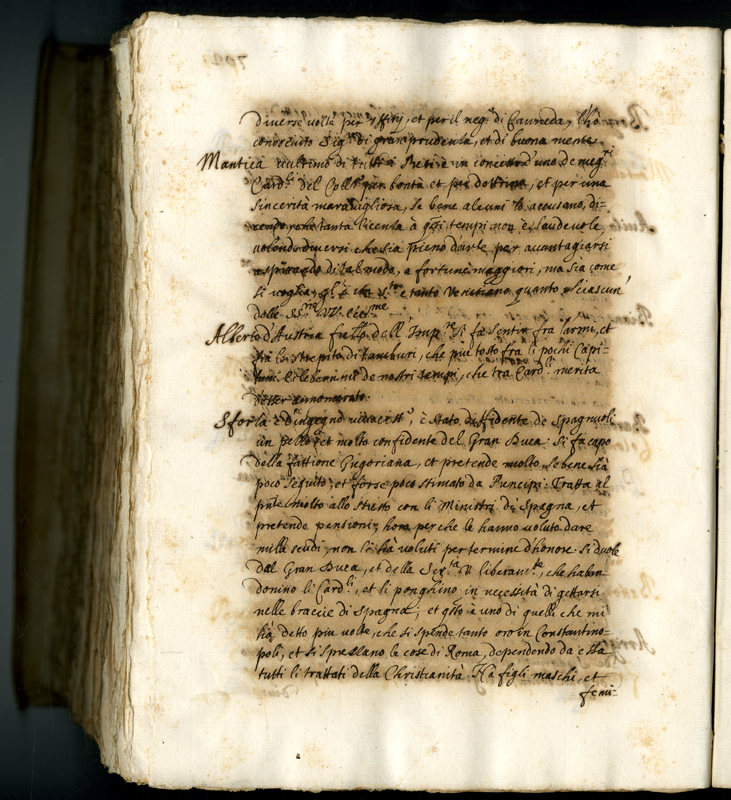 diverse volte per et per il neg.º di ho
conosciuto Sig.r di gran prudenza, et di buona mente.
Mantica ultimo di tutti i Preti è in concetto d'uno de megri
Card.li del Coll.º per bontà et per dottrina, et per una
sincerità maravigliosa, se bene alcuni lo accusano, di-
cendo, che tanta licenza à q̃sti tempi non è laudevole,
volendo diversi che sia pieno d'arte per avantagiarsi
aspirando di tal modo, a fortune maggiori, ma sia come
si voglia, è tanto Venetiano quanto sia ciascun'
delle SS.rie VV. Ecc.me
Alberto d'Austria frello dell'Imp.re si fa sentir fra l'armi, et
fra lo strepito di tamburi, che più tosto fra li pochi Capi-
tani celeberrimi de nostri tempi, che tra Card.li merita
d'esser annonerato.
Sforza è d'ingegno vivaciss.º, è stato diffidente de Spagnuoli
un pezzo, et molto confidente del Gran Duca. Si fa capo
della fattione Gregoriana, et pretende molto, se bene sia
poco seguito, et forse poco stimato da Principi. Tratta al
pñte molto allo stretto con li Ministri di Spagna, et
pretende pensioni, hora perche le hanno voluto dare
mille scudi, non li hà voluti per termine d'honore. Si duole
dal Gran Duca, et della Ser.ta V. liberam.te, che haban
donino li Card.li, et li ponghino in necessità di gettarsi
nelle braccie di Spagna; et q̃sto è uno di quelli che mi
hà detto piu volte, che si spende tanto oro in Constantino-
poli, et si sprezzano le cose di Roma, dependendo da essa
tutti li trattati della Christianità. Hà figli maschi, et
femi-